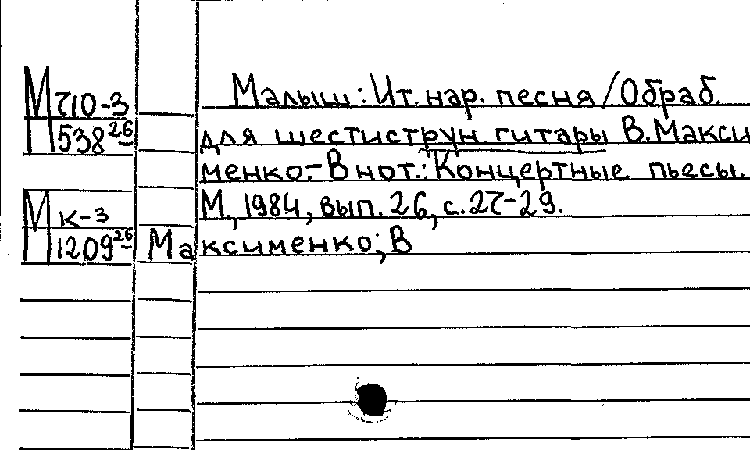 Малыш: Ит. нар. песня / Обраб.
М 710-3
538 26
для шестиструн гитары В. Макси
менко.- В нот.: Концертные пьесы.
М., 1984, вып. 26, с. 27-29.
М к-3
1209 26
Максименко; В